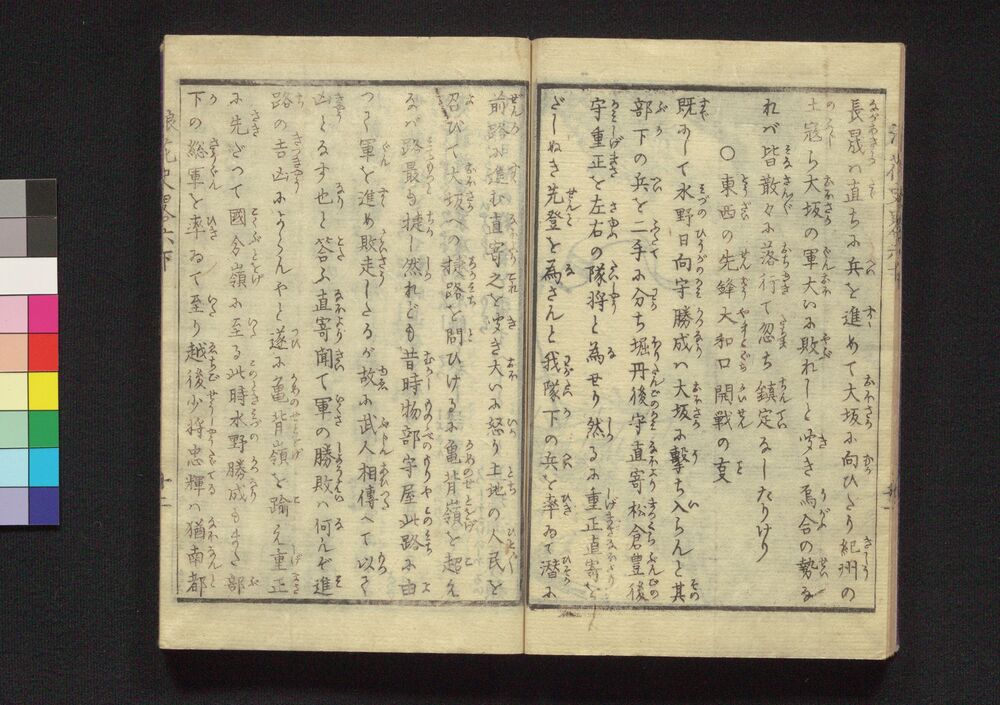 長晟ハ直ちに兵を進めて大坂に向ひたり紀州の
土寇ら大坂の軍大いに敗れしと聞き烏合の勢な
れバ皆散々に落行て忽ち鎮定なしたりけり
○東西の先鋒大和口開戦の事
既にして水野日向守勝成ハ大坂に撃ち入らんと其
部下の兵を二手に分ち堀丹後守直寄松倉豊後
守重正を左右の隊将と為せり然るに重正直寄を
だしぬき先登を為さんと我隊下の兵を率ゐて潜に
前路に進む直寄之を聞き大いに怒り土地の人民を
召びて大坂への捷路を問ひけるに亀背嶺を超え
なバ路最も捷し然れども昔時物部守屋此路に由
つて軍を進め敗走したるが故に武人相傳へて以て
凶とるす也と答ふ直寄聞て軍の勝敗ハ何んぞ進
路の吉凶によらんやと遂に亀背嶺を踰え重正
に先だつて國分嶺に至る此時水野勝成もまた部
下の総軍を率ゐて至り越後少将忠輝ハ猶南都